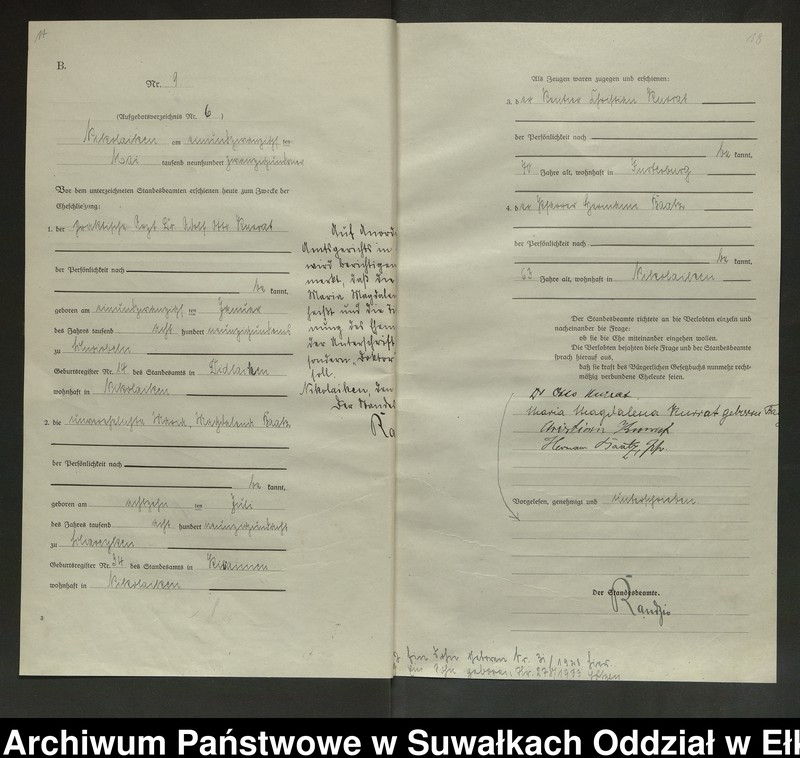 17
B.
Nr. 9
(Aufgebotsverzeichnis Nr. 6)
Nikolaiken am einundzwanzigsten
Mai tausend neunhundert
Vor dem unterzeichneten Standesbeamten erschienen heute zum Zwecke der
Eheschließung:
1. der praktische Arzt Dr. Adolf Otto Kurrat
der Persönlichkeit nach
be kannt,
geboren am einundzwanzigsten ten Januar
des Jahres tausend acht hundert
zu
Geburtsregister Nr. 14 des Standesamts in Didlacken
wohnhaft in Nikolaiken
2. die unverehelichte Maria, Magdalena Baatz
der Persönlichkeit nach
be kannt,
geboren am achtzehn ten Juli
des Jahres tausend acht hundert neunzigundacht
zu
Geburtsregister Nr. 34 des Standesamts in
wohnhaft in Nikolaiken
Auf Anord
Amtsgerichts in
wird berichtigen
merkt, daß die
Maria Magdalen
heißt und die
nung des
der Unterschrift
sondern, Doktor
soll.
Nikolaiken, den
Der Standes
Ra
18
Als Zeugen waren zugegen und erschienen:
3. der Rentier Christian Kurrat
der Persönlichkeit nach
be kannt,
70 Jahre alt, wohnhaft in Insterburg
4. der Pfarrer Hermann Baatz
der Persönlichkeit nach
be kannt,
63 Jahre alt, wohnhaft in Nikolaiken
Der Standesbeamte richtete an die Verlobten einzeln und
nacheinander die Frage:
ob sie die Ehe miteinander eingehen wollen.
Die Verlobten bejahten diese Frage und der Standesbeamte
sprach hierauf aus,
daß sie kraft des Bürgerlichen Gesetzbuchs nunmehr recht-
mäßig verbundene Eheleute seien.
Dr Otto Kurrat.
Maria Magdalena Kurrat geborene Baa
Christian Kurrat
Hermann Baatz, Pfr.
Vorgelesen, genehmigt und unterschrieben
Der Standesbeamte.
Randzio
Ein Sohn geboren Nr. 31/ hier
Ein Sohn geboren Nr. Lötzen
Archiwum Państwowe w Suwałkach Oddział w Eł